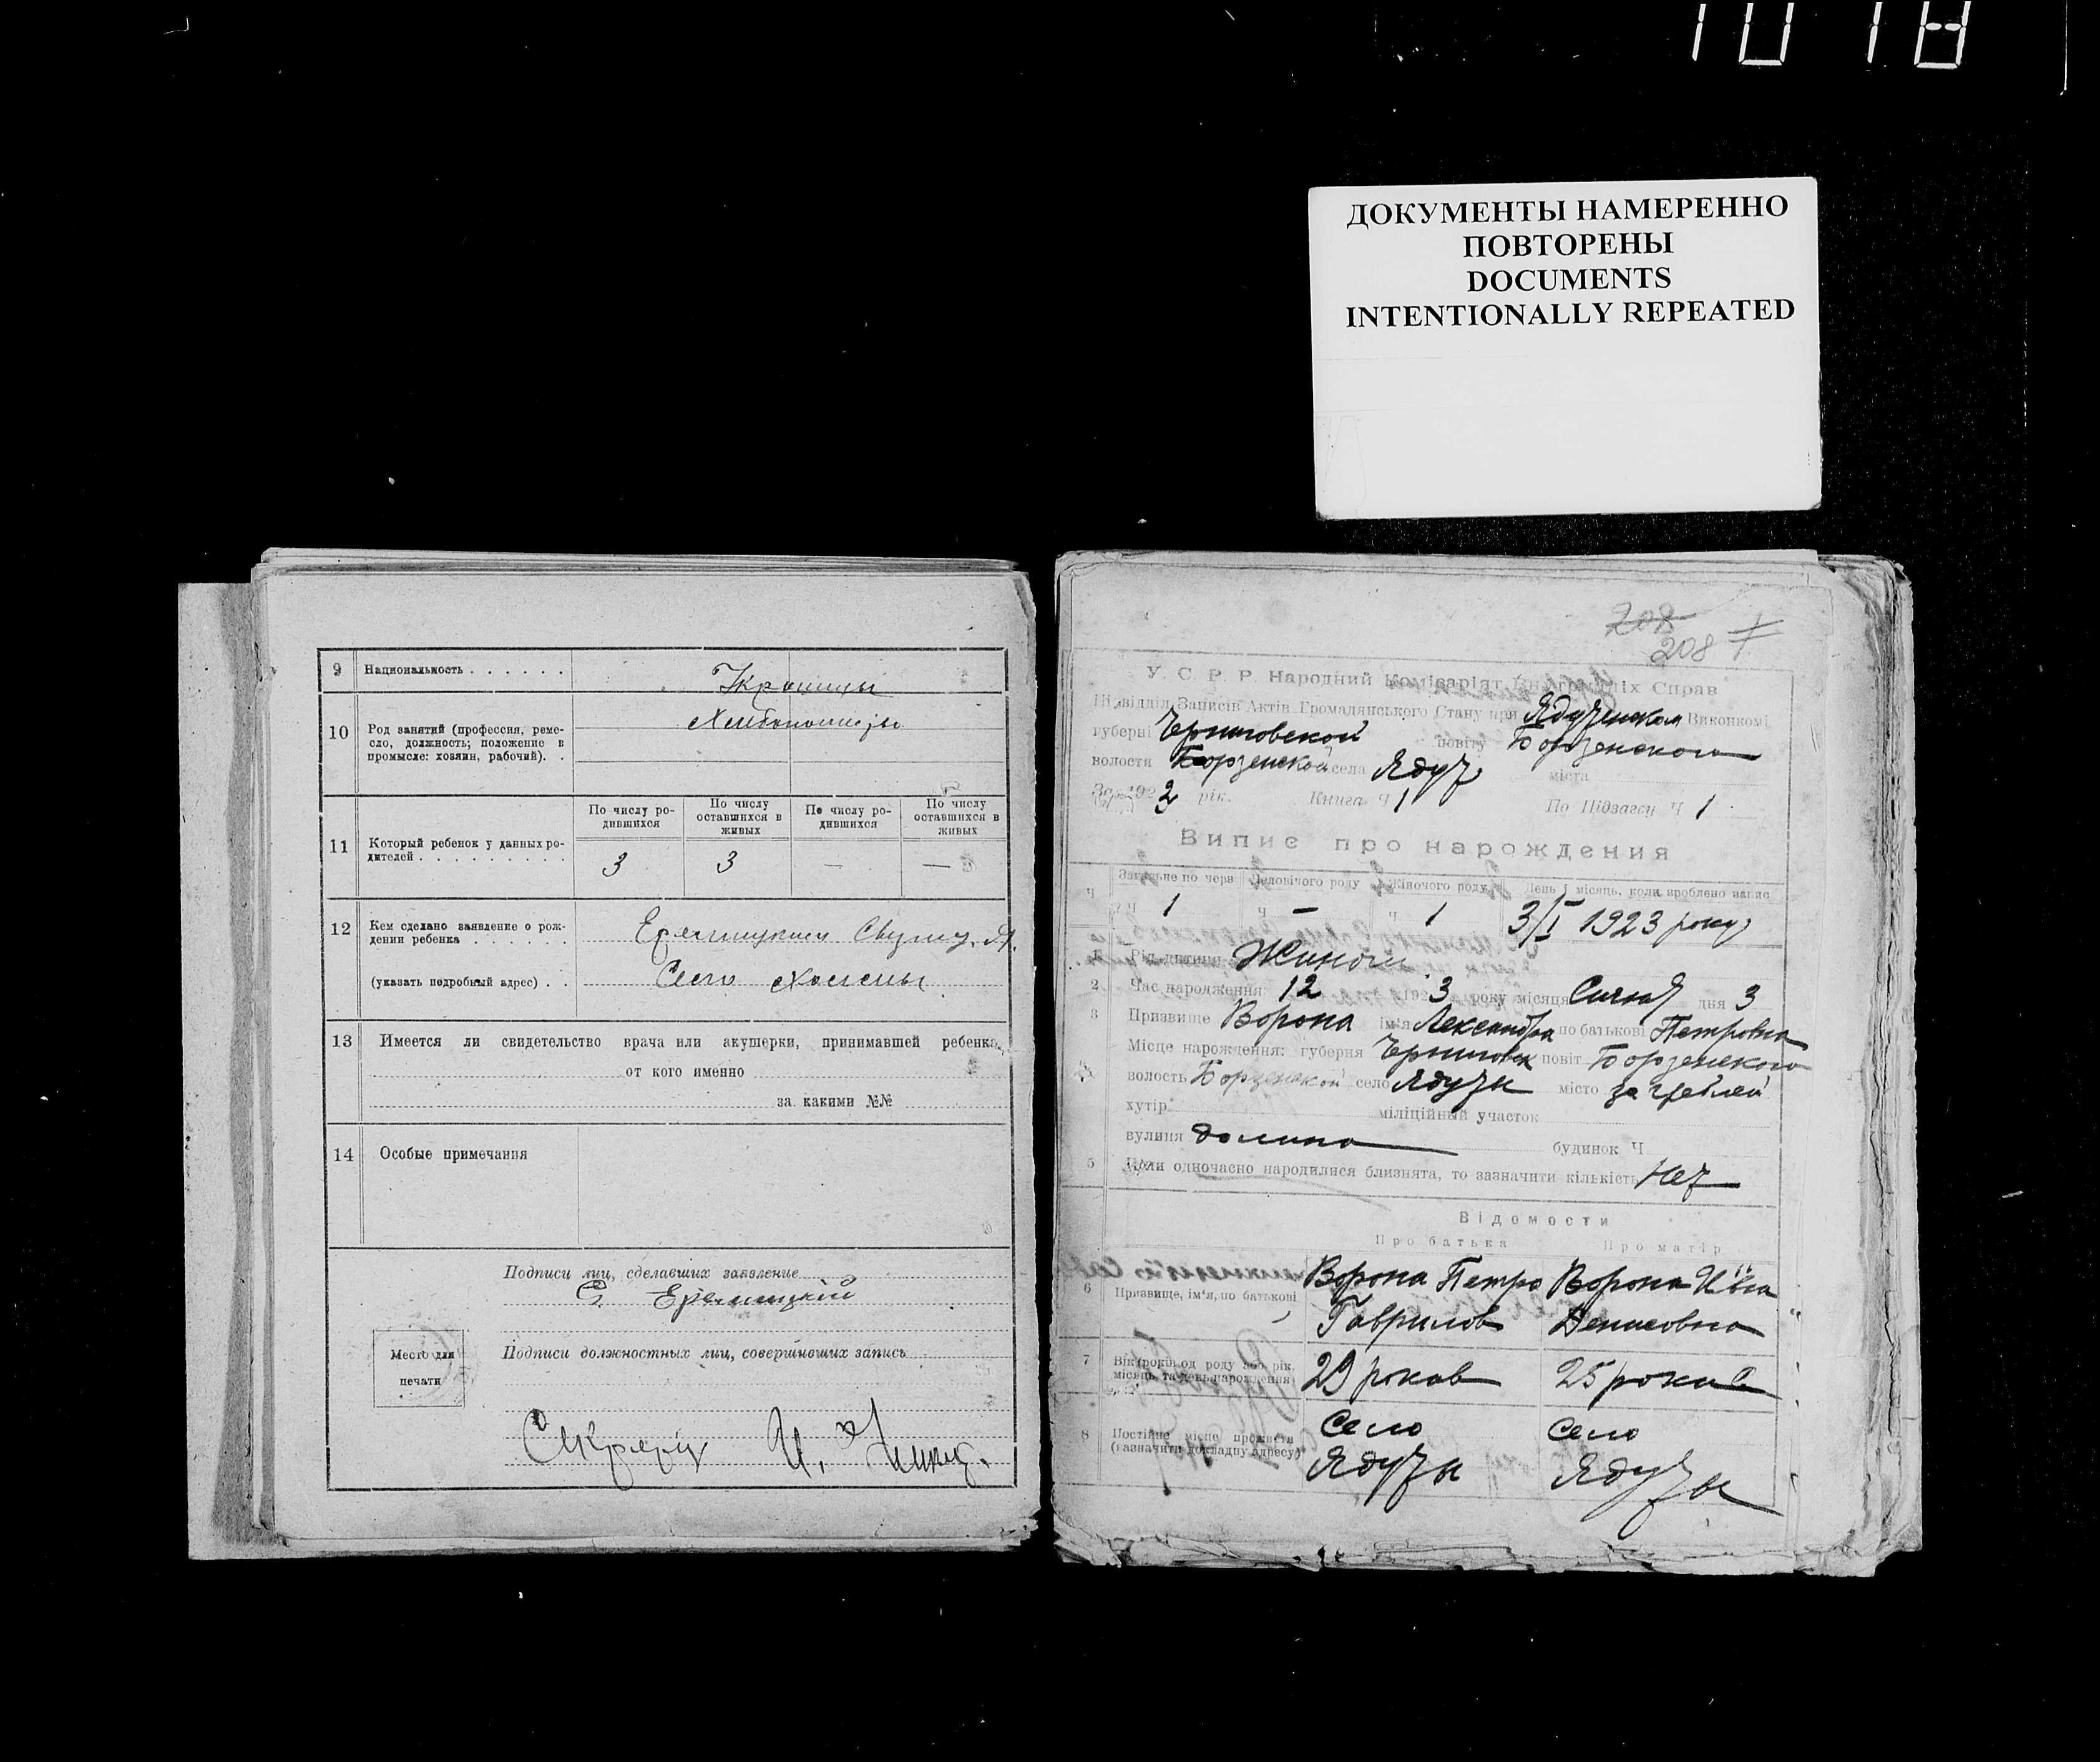 1018
ДОКУМЕНТЫ НАМЕРЕННО
ПОВТОРЕНЫ
DOCUMENTS
INTENTIONALLY REPEATED
9 Национальность . . . . . . Украинцы
10 Род занятий (профессия, реме-
сло, должность; положение в
промысле: хозяин, рабочий). .
11 Который ребенок у данных ро-
дителей . . . . . . . . . .
По числу ро-
дившихся
По числу
оставшихся в
живых
По числу ро-
дившихся
По числу
оставшихся в
живых
3 3 — —
12 Кем сделано заявление о рож-
дении ребенка . . . . . .
(указать подробный адрес) . . Село
13 Имеется ли свидетельство врача или акушерки, принимавшей ребенка,
от кого именно
за какими №№
14 Особые примечания
Подписи лиц, сделавших заявление
Подписи должностных лиц, совершивших запись
Место для
печати
208
208
У. С. Р. Р. Народний Комісаріят Внутрішніх Справ
Підвідділ Записів Актів Громадянського Стану при Ядутенском Виконкомі
губерні Черниговской повіту Борзенского
волости Борзенской села Ядут міста
За 192 3 рік. Книга Ч 1 По Підзагсу Ч 1
Випис про народження
Загальне по черв Чоловічого роду Жіночого роду День і місяць, коли зроблено запис
Ч 1 Ч — Ч 1 3/I 1923 року
1 Рід дитини Жиночи
2 Час народження 12 192 3 року місяця Сичня дня 3
3 Призвище Ворона ім'я Лександра по батькові Петровна
4 Місце народження: губерня Чернигов повіт Борзенского
волость Борзенской село Ядуты місто за греблей
хутір міліційний участок
вулиця долина будинок Ч
5 Коли одночасно народилися близнята, то зазначити кількість Нет
Відомости
Про батька Про матір
6 Призвище, ім'я, по батькові
Ворона Петро
Гаврилов
Ворона
Денисовна
7 Вік (років од роду або рік,
місяць та день народження)
29 роков 25 роков
8 Постійне місце прожиття
(зазначити докладну адресу)
Село
Ядуты
Село
Ядуты